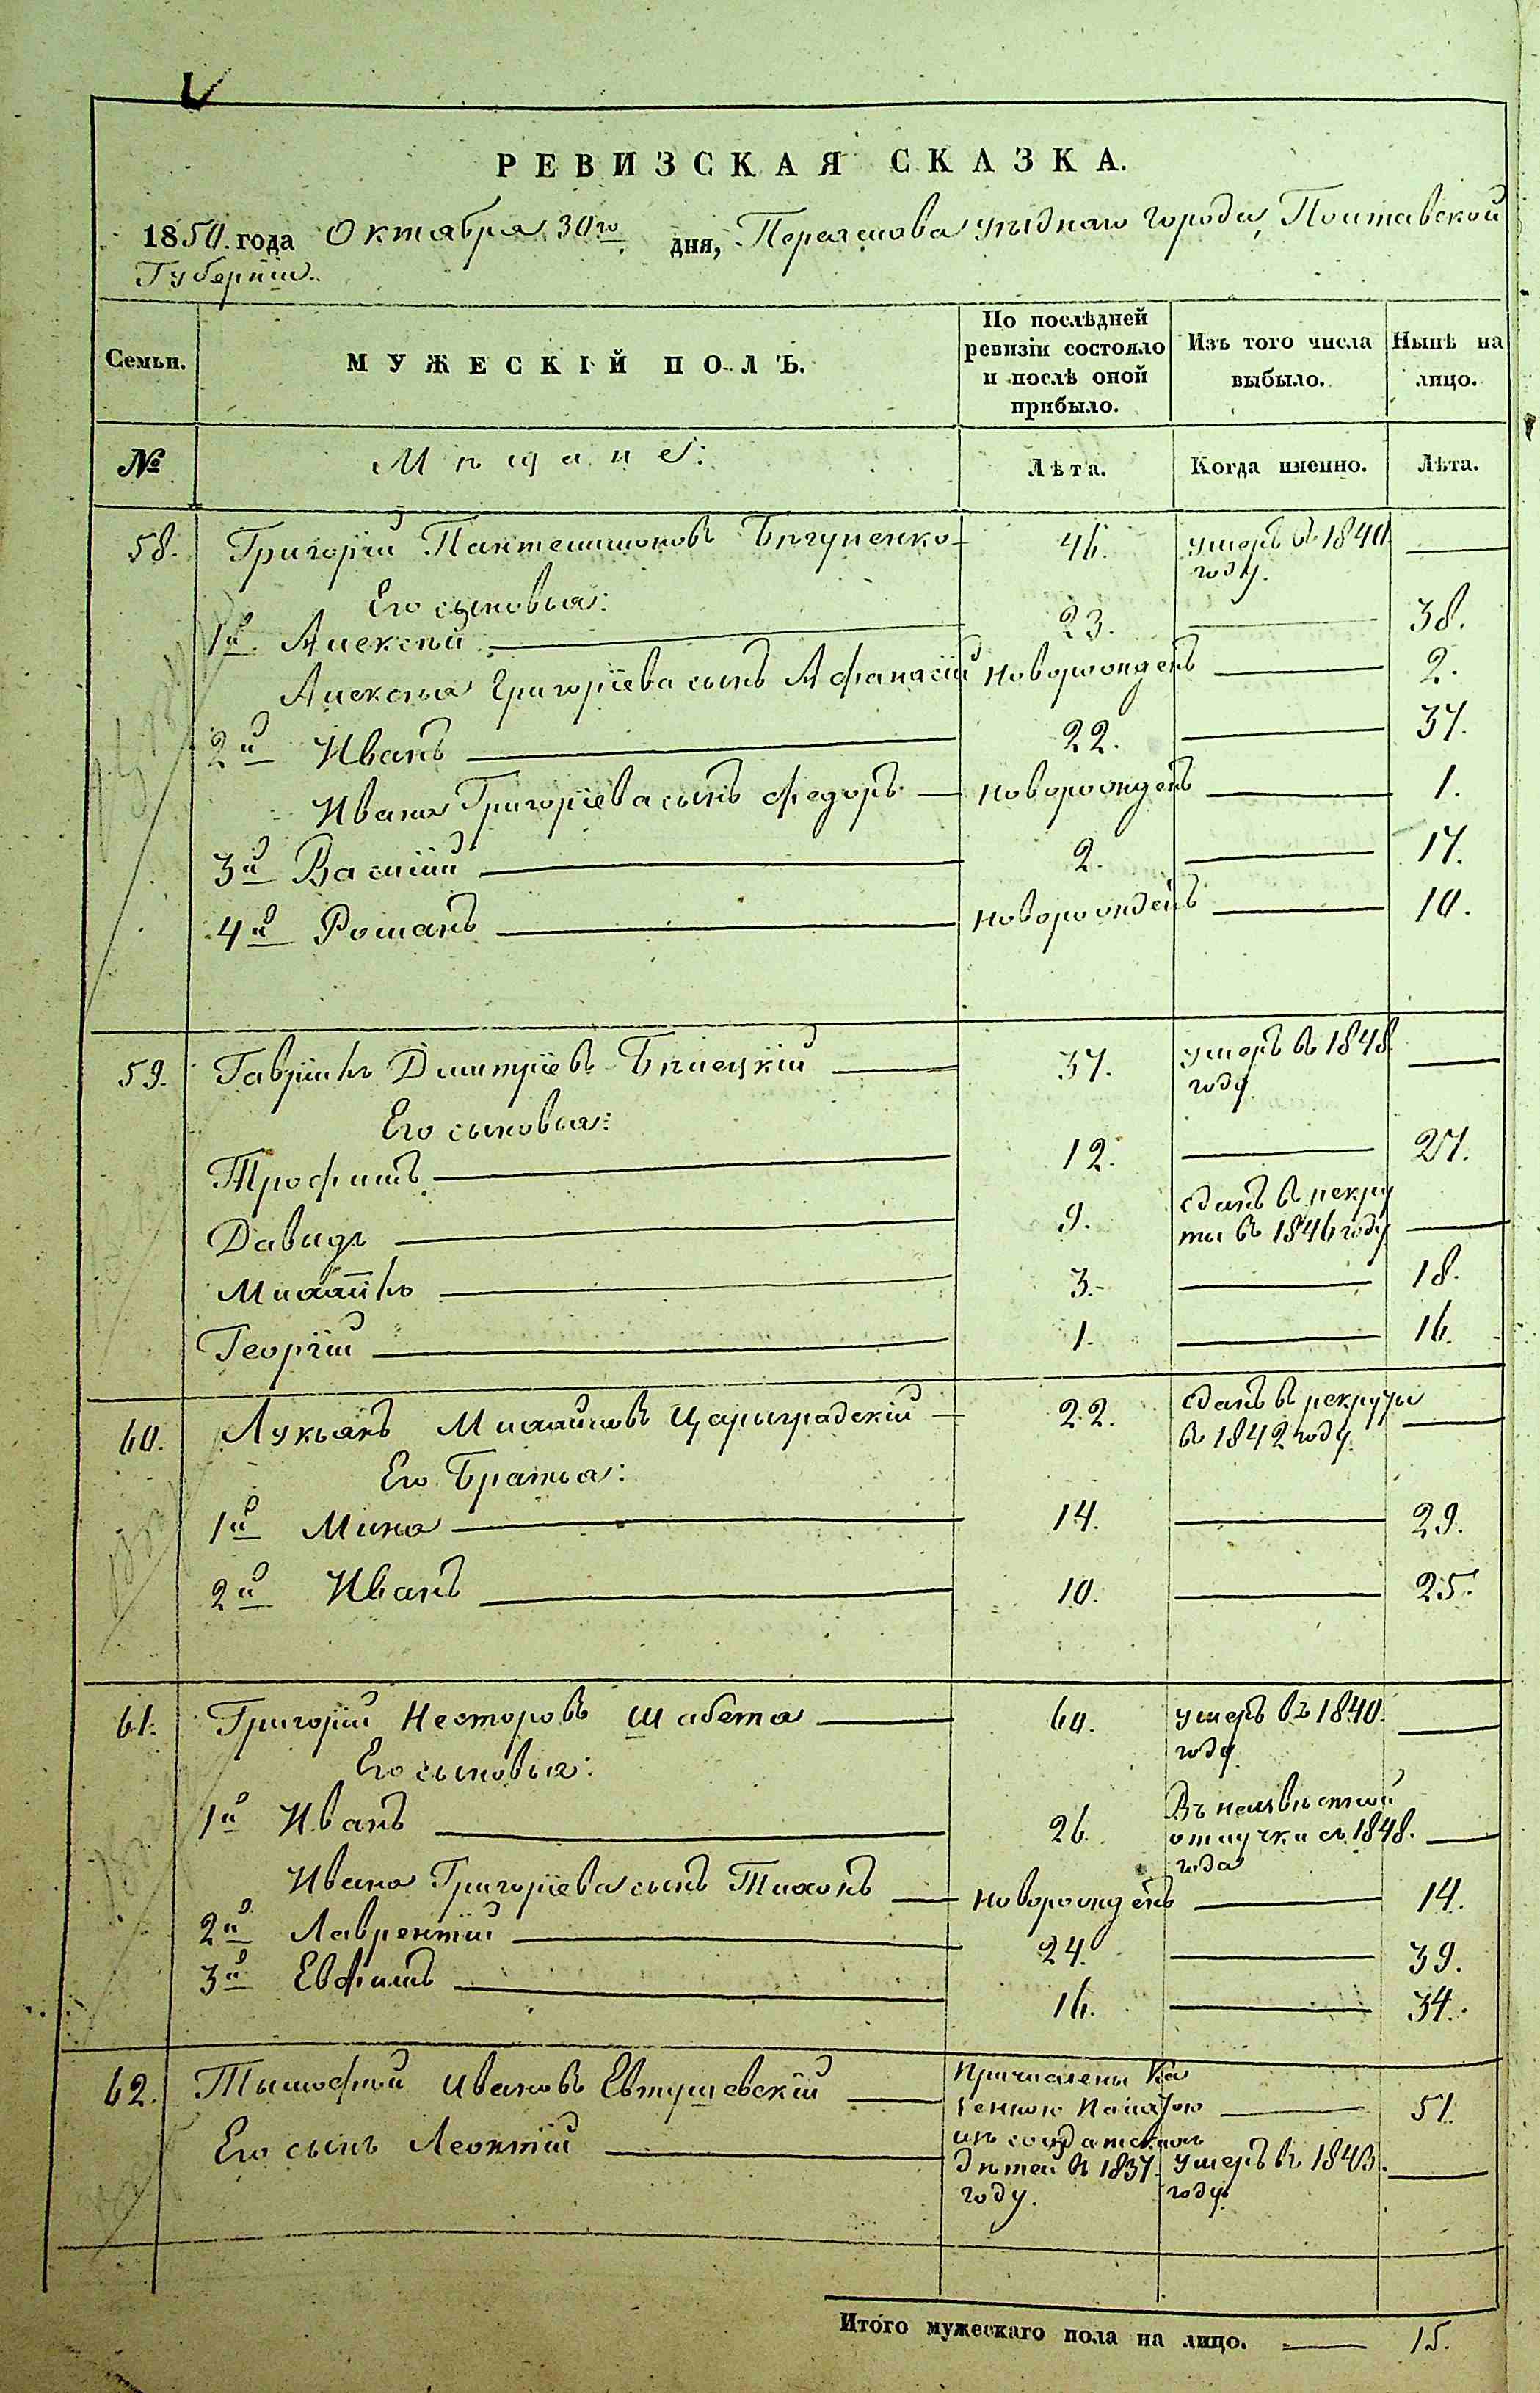 РЕВИЗСКАЯ СКАЗКА.
1850. года Октября 30го дня, Переяслова уѣзднаго города, Полтавской
Губерніи.
Семьи.
МУЖЕСКІЙ ПОЛЪ.
По послѣдней ревизіи состояло и послѣ оной прибыло.
Изъ того числа выбыло.
Нынѣ на лицо.
№
Мѣщане:
Лѣта.
Когда именно.
Лѣта.
58. Григорій Пантелимоновъ Бѣгуненко 46. умеръ въ 1840
году.
Его сыновья:
1й Алексѣй 23. 38.
Алексѣя Григоріева сынъ Афанасій новорожденъ 2.
2й Иванъ 22. 37.
Ивана Григоріева сынъ Федоръ новорожденъ 1.
3й Василій 2. 17.
4й Романъ новорожденъ 10.
59. Гавріилъ Дмитріевъ Бѣлецкій 37. умеръ въ 1848
году.
Его сыновья:
Трофимъ 12. 27.
Давидъ 9. сданъ въ рекру
ты въ 1846 году
Михаилъ 3. 18.
Георгій 1. 16.
60. Лукьянъ Михайловъ Цариградскій 22. сданъ въ рекруты
въ 1842 году.
Его Братья:
1й Мина 14. 29.
2й Иванъ 10. 25.
61. Григорій Несторовъ Шабета 60. умеръ въ 1840.
году.
Его сыновья:
1й Иванъ 26. Въ неизвѣстной
отлучки съ 1848.
года
Ивана Григоріева сынъ Тихонъ новорожденъ 14.
2й Лаврентій 24. 39.
3й Евфимъ 16. 34.
62. Тимофѣй Ивановъ Евтушевскій Причислены Ка
зенною Палатою 51.
изъ солдатскихъ
Его сынъ Леонтій дѣтей въ 1837. умеръ въ 1843.
году. году.
Итого мужескаго пола на лицо. 15.